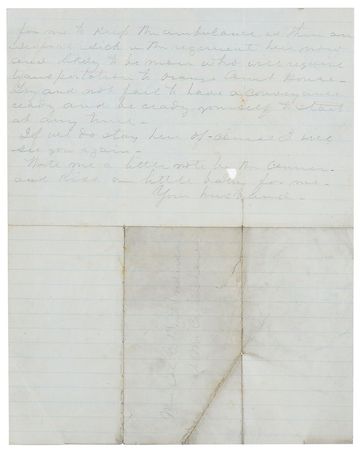 for me to keep the ambulance as there are
several sick in the regiment here now
and likely to be more who will require
transportation to Orange Court House -
Try and not fail to have a conveyance
ready and be ready yourself to start
at any time -
If we do stay here of course I will
see you again -
Write me a letter note by the
and kiss our little baby for me -
Your husband -